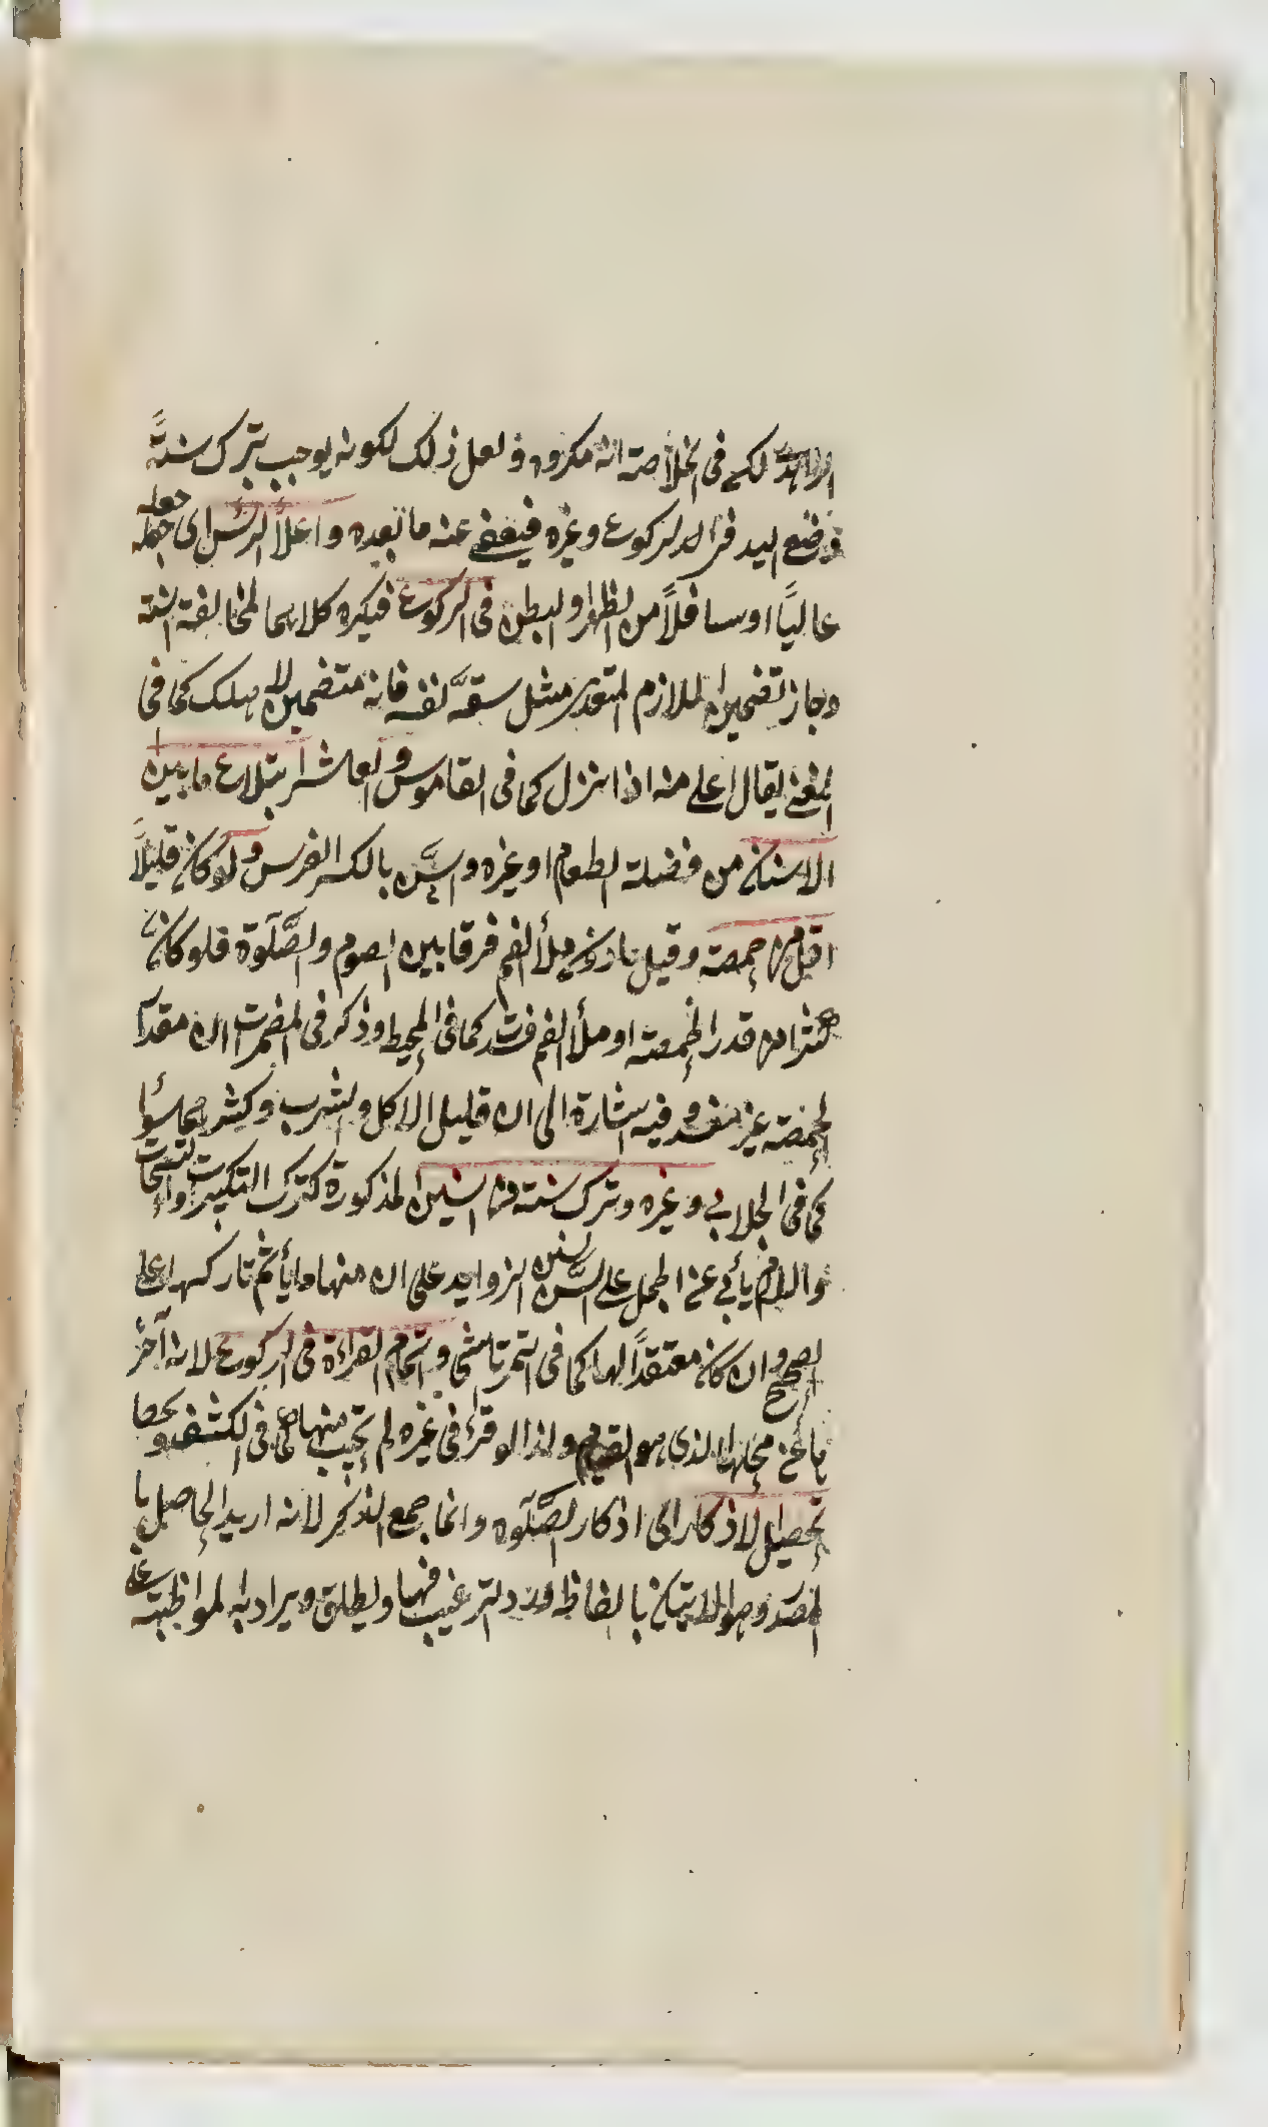 الزاهدى لكن فى الخلاصة انه مكروه ولعل ذلك لكونه يوجب بترك سنة
وضع اليد فى الركوع وغيره فيعفى عنه ما بعده واعلاء الرأس اى جعله
عاليًا او سافلًا من الظهر والبطن فى الركوع فيكره كلاهما لمخالفة السنة
وجاز تضمين اللازم المتعدى مثل سفهَ نفسه فانه متضمن لاهلك كما فى
المغنى يقال اعلى منه اذا نزل كما فى القاموس والعاشر ابتلاع ما بين
الاسنان من فضلة الطعام او غيره والسِّن بالكسر الضرس ولو كان قليلًا
اقل من حمصة وقيل ما دون ملأ الفم فرقا بين الصوم والصَّلوة فلو كان
كثيرا من قدر الحمصة او ملأ الفم فسد كما فى المحيط وذكر فى المضمرات ان مقدار
الحمصة غير مفسد وفيه اشارة الى ان قليل الاكل والشرب وكثيرهما سواء
كما فى الجلابى وغيره وترك سنة من السنن المذكورة كترك التكبيرات والتسبيحات
واللام يأبى عن الحمل على السنن الزوايد على ان منها ما يأثم تاركها على
الصحيح وان كان معتقدًا لها كما فى التمرتاشى واتمام القراءة فى الركوع لانه آخر
ما عن محلها الذى هو القيام ولذا لو قرأ فى غيره لم تحب منها كما فى الكشف و
تحصيل الاذكار اى اذكار الصَّلوة وانما جمع الذكر لانه اريد الحاصل با
لمصدر وهو الاتيان بالفاظ ورد الترغيب فيها ويطلق ويراد به المواظبة على